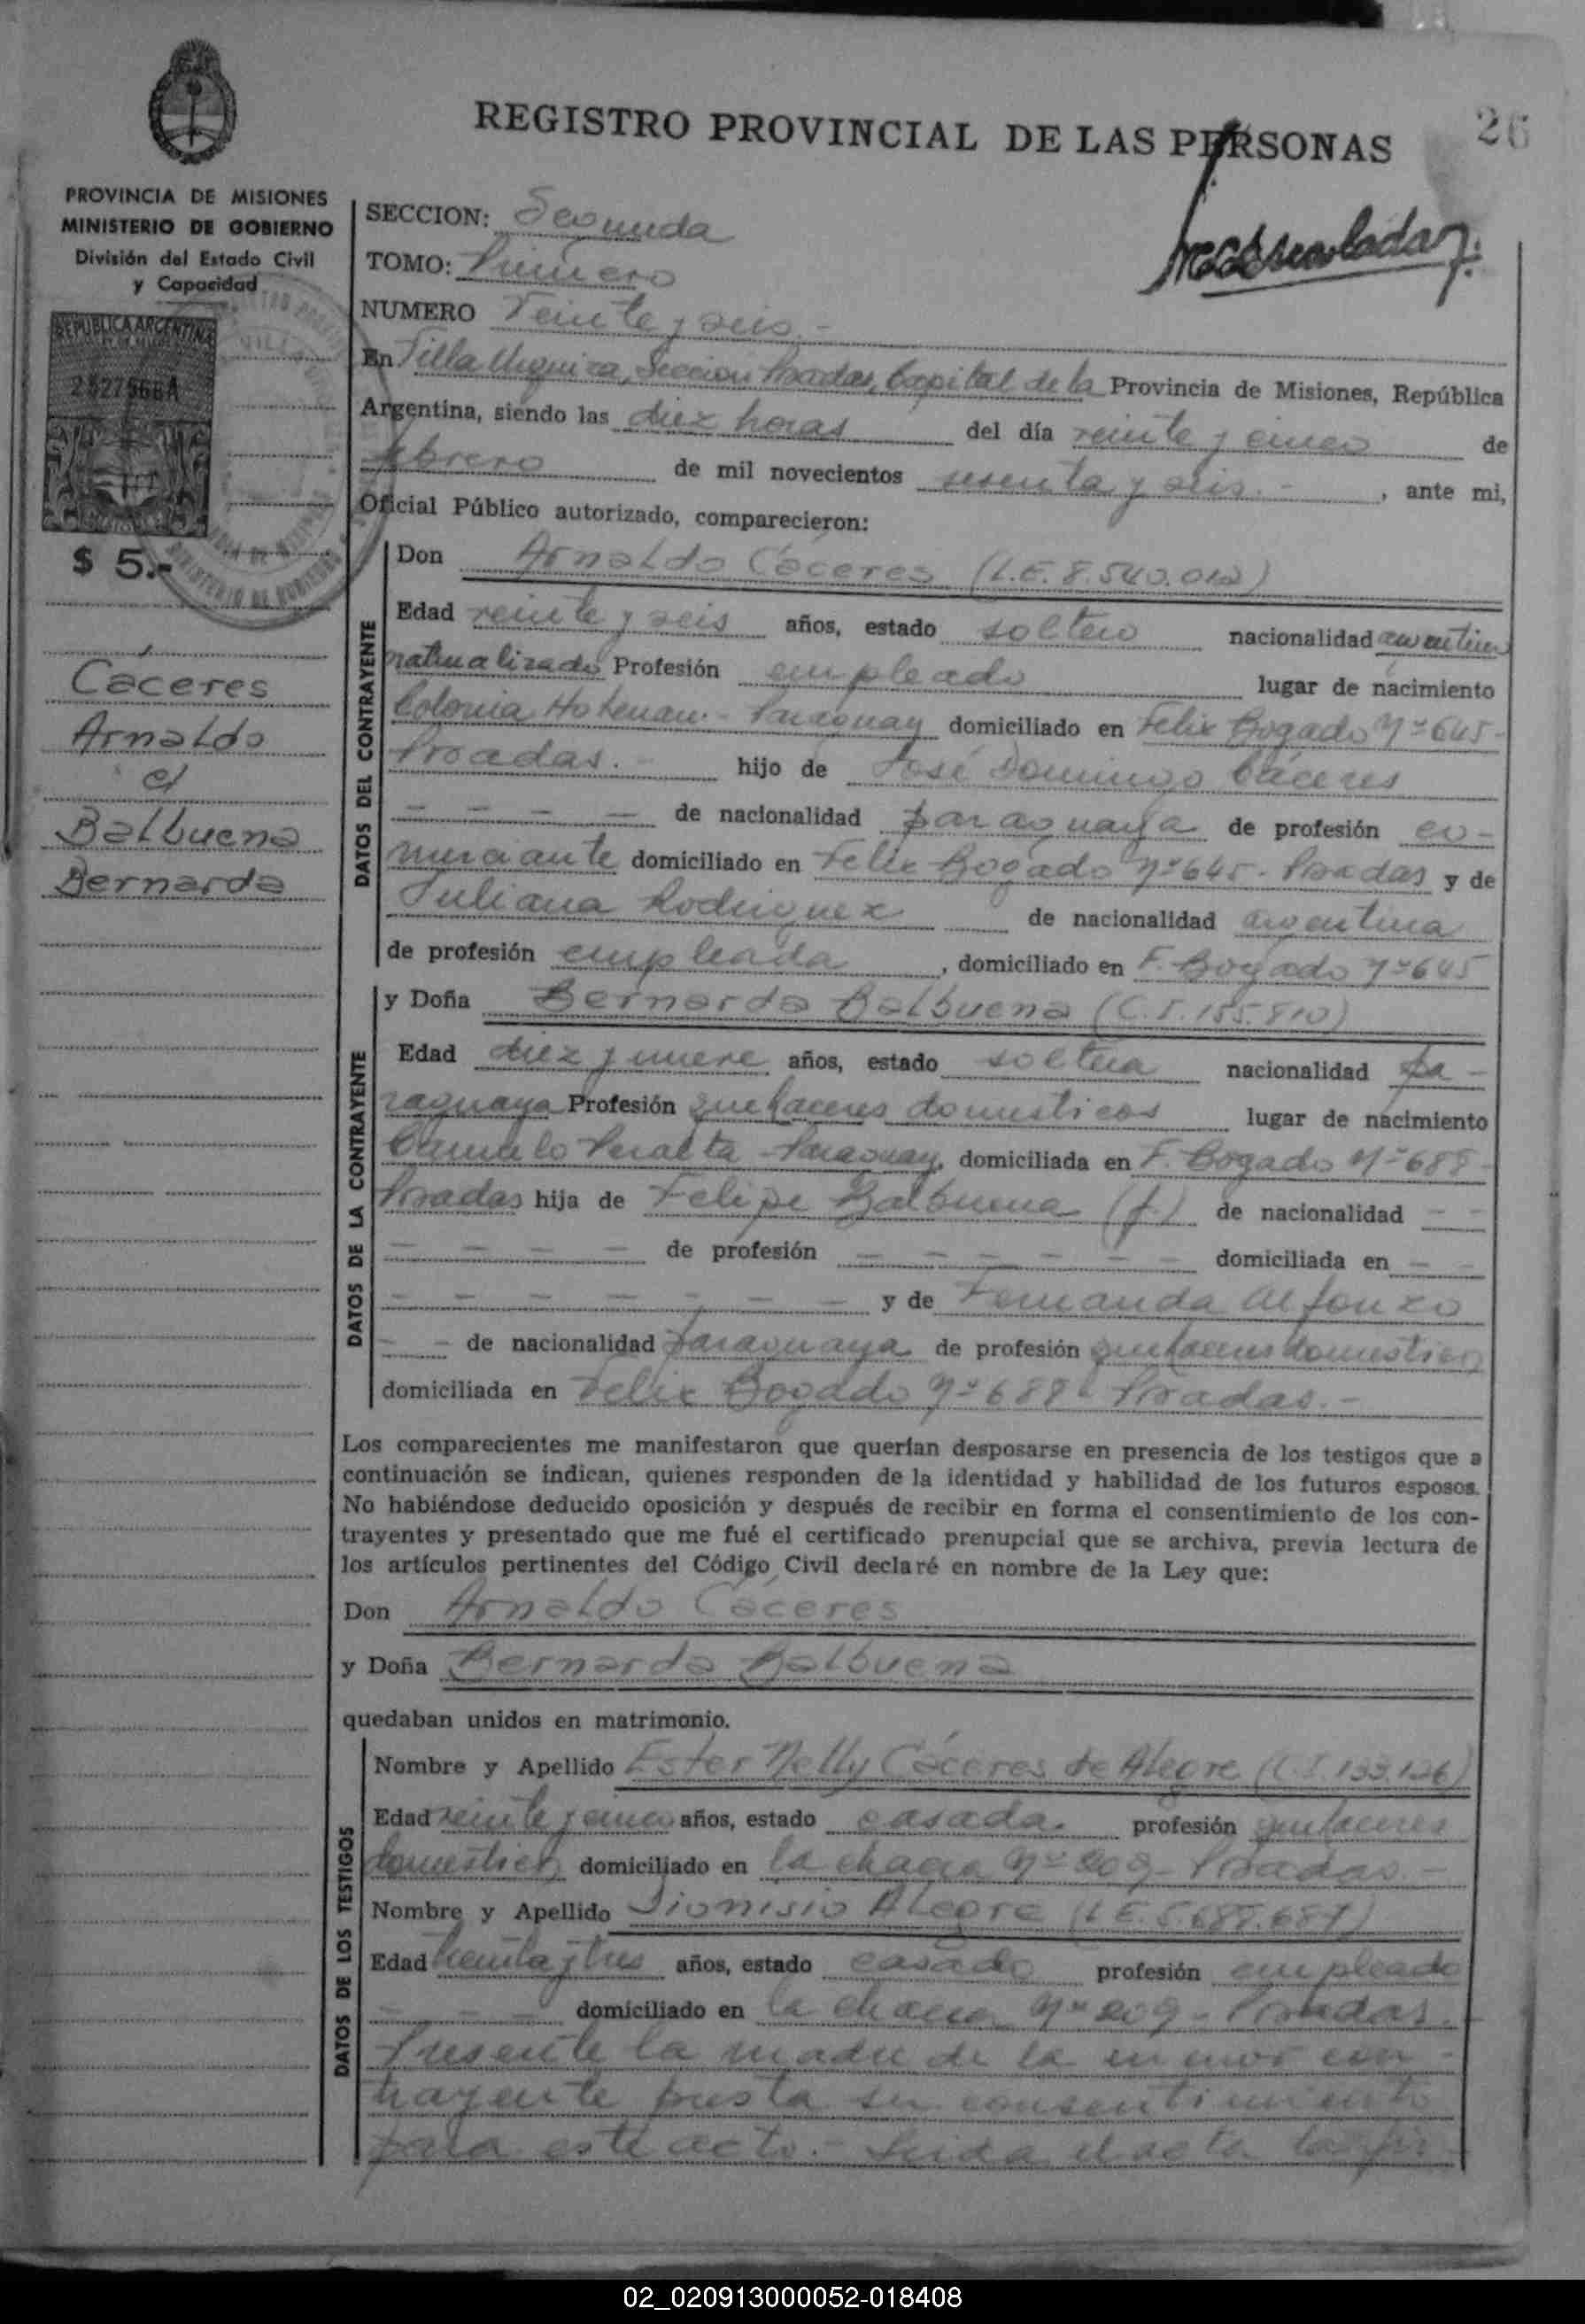 REGISTRO PROVINCIAL DE LAS PERSONAS
26
PROVINCIA DE MISIONES
MINISTERIO DE GOBIERNO
División del Estado Civil
y Capacidad
REPUBLICA ARGENTINA
$ 5.-
Cáceres
Arnaldo
c/
Balbuena
Bernarda
SECCION: Segunda
TOMO: Primero
NUMERO Veinte y seis.-
En Villa Urquiza, Seccion Posadas, Capital de la Provincia de Misiones, República
Argentina, siendo las diez horas del día veinte y cinco de
febrero de mil novecientos sesenta y seis.- , ante mi,
Oficial Público autorizado, comparecieron:
DATOS DEL CONTRAYENTE
Don Arnaldo Cáceres (L.E. 8.540.012)
Edad veinte y seis años, estado soltero nacionalidad argentino
naturalizado Profesión empleado lugar de nacimiento
Colonia Hohenau.- Paraguay domiciliado en Felix Bogado Nº 645-
Posadas.- hijo de José Domingo Cáceres
- - - - de nacionalidad paraguaya de profesión co-
merciante domiciliado en Felix Bogado Nº 645- Posadas y de
Juliana Rodriguez de nacionalidad argentina
de profesión empleada , domiciliado en F. Bogado Nº 645
DATOS DE LA CONTRAYENTE
y Doña Bernarda Balbuena (C.I. 155.810)
Edad diez y nueve años, estado soltera nacionalidad pa-
raguaya Profesión quehaceres domesticos lugar de nacimiento
Peralta - Paraguay, domiciliada en F. Bogado Nº 688-
Posadas hija de Felipe Balbuena (f.) de nacionalidad - -
- - - - de profesión - - - - - - domiciliada en - -
- - - - - - - y de Fernanda Alfonzo
- - de nacionalidad paraguaya de profesión quehaceres domesticos
domiciliada en Felix Bogado Nº 688- Posadas.-
Los comparecientes me manifestaron que querían desposarse en presencia de los testigos que a
continuación se indican, quienes responden de la identidad y habilidad de los futuros esposos.
No habiéndose deducido oposición y después de recibir en forma el consentimiento de los con-
trayentes y presentado que me fué el certificado prenupcial que se archiva, previa lectura de
los artículos pertinentes del Código Civil declaré en nombre de la Ley que:
Don Arnaldo Cáceres
y Doña Bernarda Balbuena
quedaban unidos en matrimonio.
DATOS DE LOS TESTIGOS
Nombre y Apellido Ester Nelly Cáceres de Alegre (C.I. 133.126)
Edad veinte y cinco años, estado casada. profesión quehaceres
domesticos domiciliado en la chacra Nº 209- Posadas.-
Nombre y Apellido Dionisio Alegre (L.E. 5.688.687)
Edad treinta y tres años, estado casado profesión empleado
- - - domiciliado en la chacra Nº 209- Posadas.
Presente la madre de la menor con-
trayente presta su consentimiento
para este acto.- Leida el acta la fir-
02_020913000052-018408